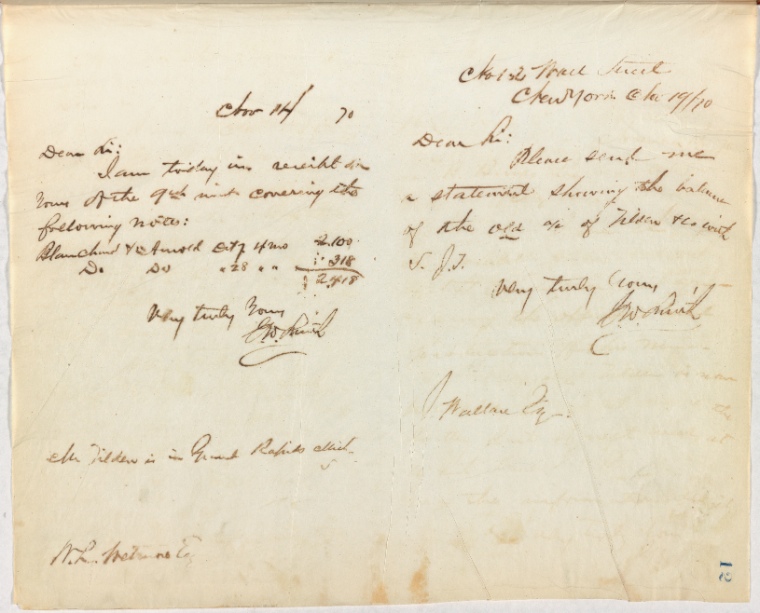 Nov 14/ 70
Dear Sir:
I am today in receipt
yours of the 9th inst covering the
following notes:
Blanchard & Arnold 4 mo 2.100
Do Do " 28 " " 318
2418
Very truly yours
Smith
Mr Tilden is in Grand Rapids Mich.
W.L.
No 12 Wall Street
New York Nov 19/70
Dear Sir:
Please send me
a statement showing the balance
of the old a/c of Tilden & Co with
S. J. T.
Very truly yours
Smith
J Wallace Esq.
12